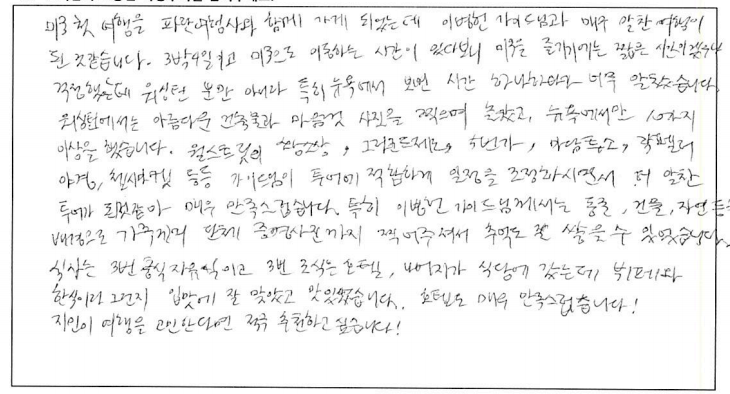 미국 첫 여행을 파란여행사와 함께 가게 되었는데 이병헌 가이드님과 매우 알찬 여행이
된 것같습니다. 3박4일이고 미국으로 이동하는 시간이 있다보니 미국을 즐기기에는 짧은 시간이겠구나
걱정했는데 워싱턴 뿐만 아니라 특히 뉴욕에서 보낸 시간 하나하나가 너무 알찼습니다.
워싱턴에서는 아름다운 건축물과 마음껏 사진을 찍으며 놀았고, 뉴욕에서만 10가지
이상을 했습니다. 월스트릿의 황소상, 그라운드제로, 5번가, 마담투소, 락펠러
야경, 첼시마켓 등등 가이드님이 투어에 적합하게 일정을 조정하시면서 더 알찬
투어가 된것같아 매우 만족스럽습니다. 특히 이병헌 가이드님께서는 동물, 건물, 자연 등을
배경으로 가족끼리 단체 동영상까지 찍어주셔서 추억도 잘 쌓을 수 있었습니다.
식사는 3번 중식 자유식이고 3번 조식은 호텔, 나머지가 식당에 갔는데 뷔페와
한식이라 그런지 입맛에 잘 맞았고 맛있었습니다. 호텔도 매우 만족스럽습니다!
지인이 여행을 고민한다면 적극 추천하고 싶습니다!